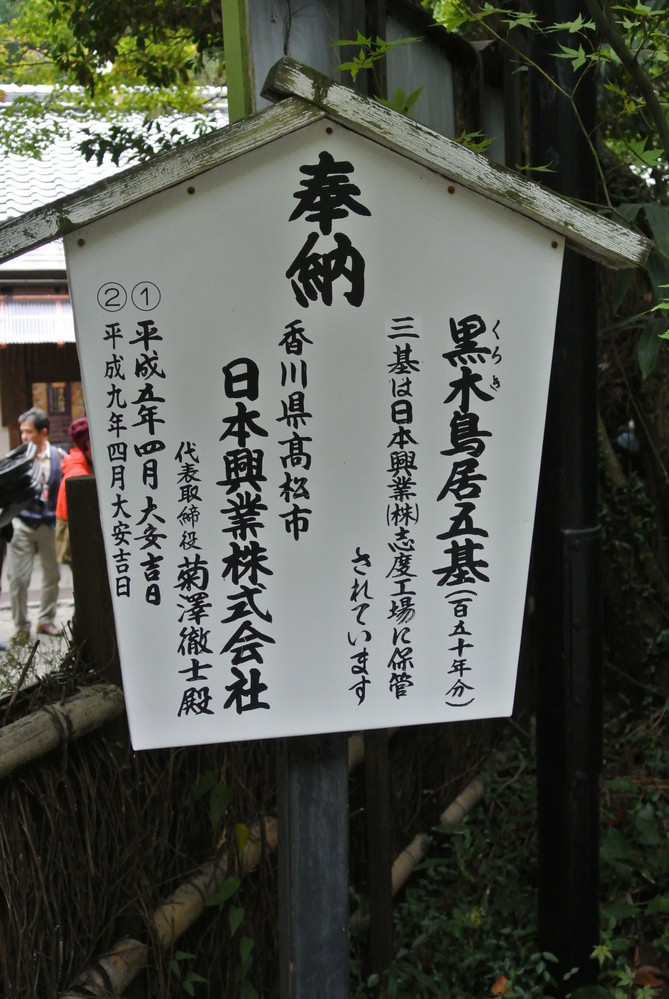 奉納
黒木鳥居五基(百五十年分)
くろき
三基は日本興業(株)志度工場に保管
されています
香川県高松市
日本興業株式会社
代表取締役 菊澤徹士殿
①平成五年四月大安吉日
②平成九年四月大安吉日